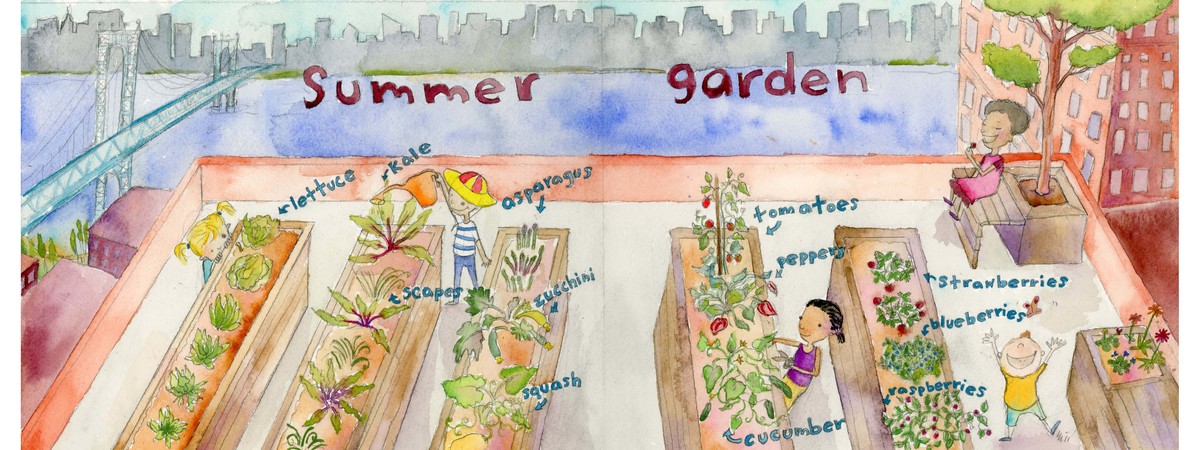 Summer garden
lettuce
kale
asparagus
scapes
zucchini
squash
tomatoes
peppers
cucumber
strawberries
blueberries
raspberries